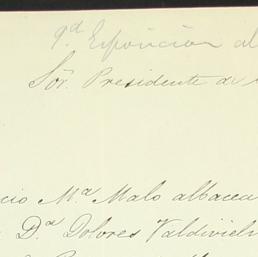 9.ª Exposicion al
Sör. Presidente de
cio M.ª Malo albacea
D.ª Dolores Valdivielso